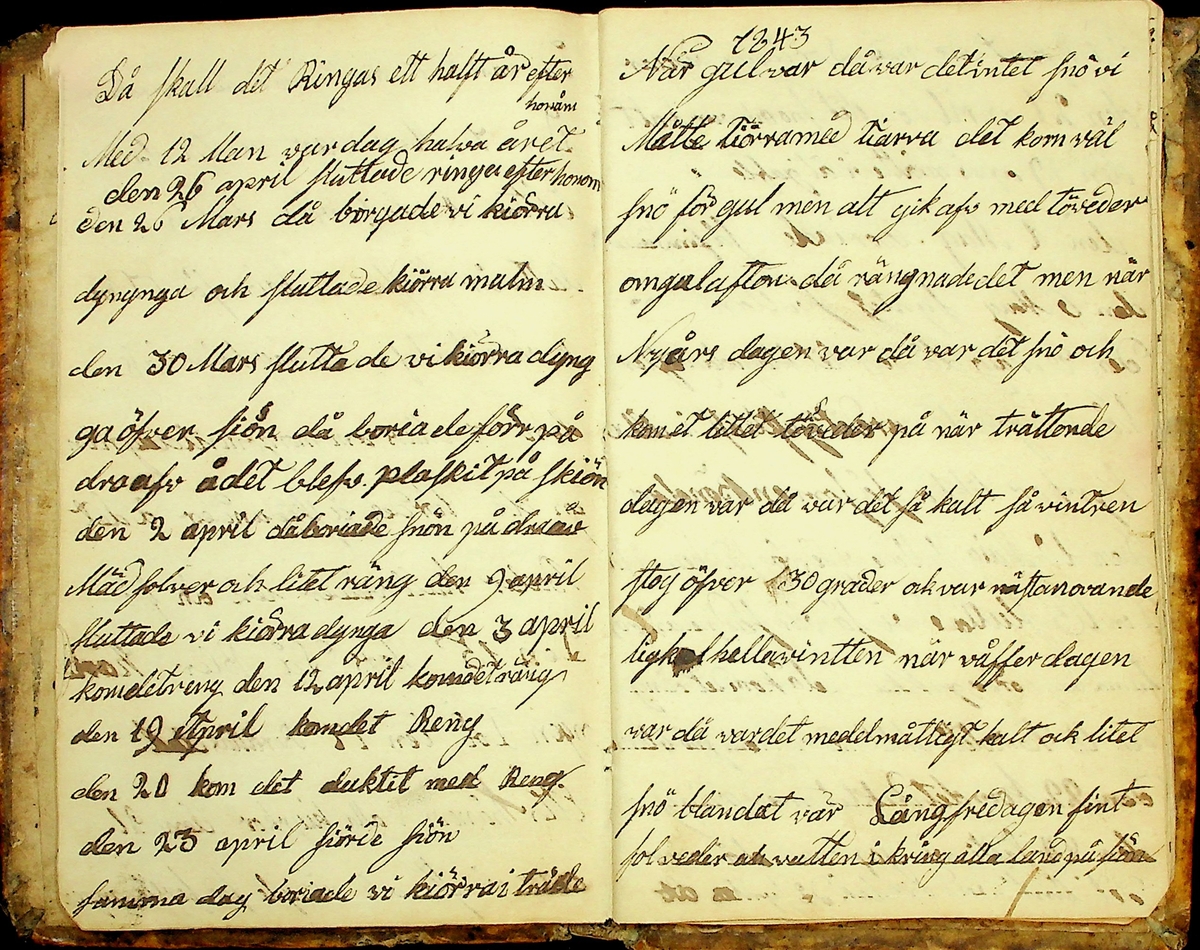 Då skall det Ringas ett halft år efter
honåm
Med 12 Man var dag halva året
den 26 april sluttade ringa efter honom
den 26 Mars då börgade vi kiörra
dynynga och sluttade kiörra malm
den 30 Mars slutta de vi kiörra dyng
ga öfver siön då boriade förr på
dra afv å det blefv plaskit på skiön
den 2 april då boriade snön på draav
Mäd solver och litet räng den 9 april
sluttade vi kiörra dynga den 3 april
kom det reng den 12 april kom det räng
den 19 April kom det Reng
den 20 kom det duktit med Reng
den 23 april siörde siön
samma dag boriade vi kiörra i träde
1843
När gul var då var det intet snö vi
Måtte kiörra med kiarra det kom väl
snö för gul men alt gik afv med töveder
om gulafton då rängnade det men när
Nyårs dagen var då var det snö och
kom et littet töveder på när trättonde
dagen var då var det så kalt så vintren
stog öfver 30 grader ok var nästan ovande
ligk hella vintten när våffer dagen
var då var det medelmåttigt kalt ock litet
snö blandat var Långfredagen fint
solveder ok vatten i kring alla land på siön